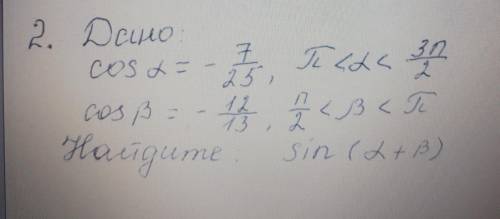 2. Дано:
cos α = - 7/25, π < α < 3π/2
cos β = - 12/13, π/2 < β < π
Найдите: sin (α + β)